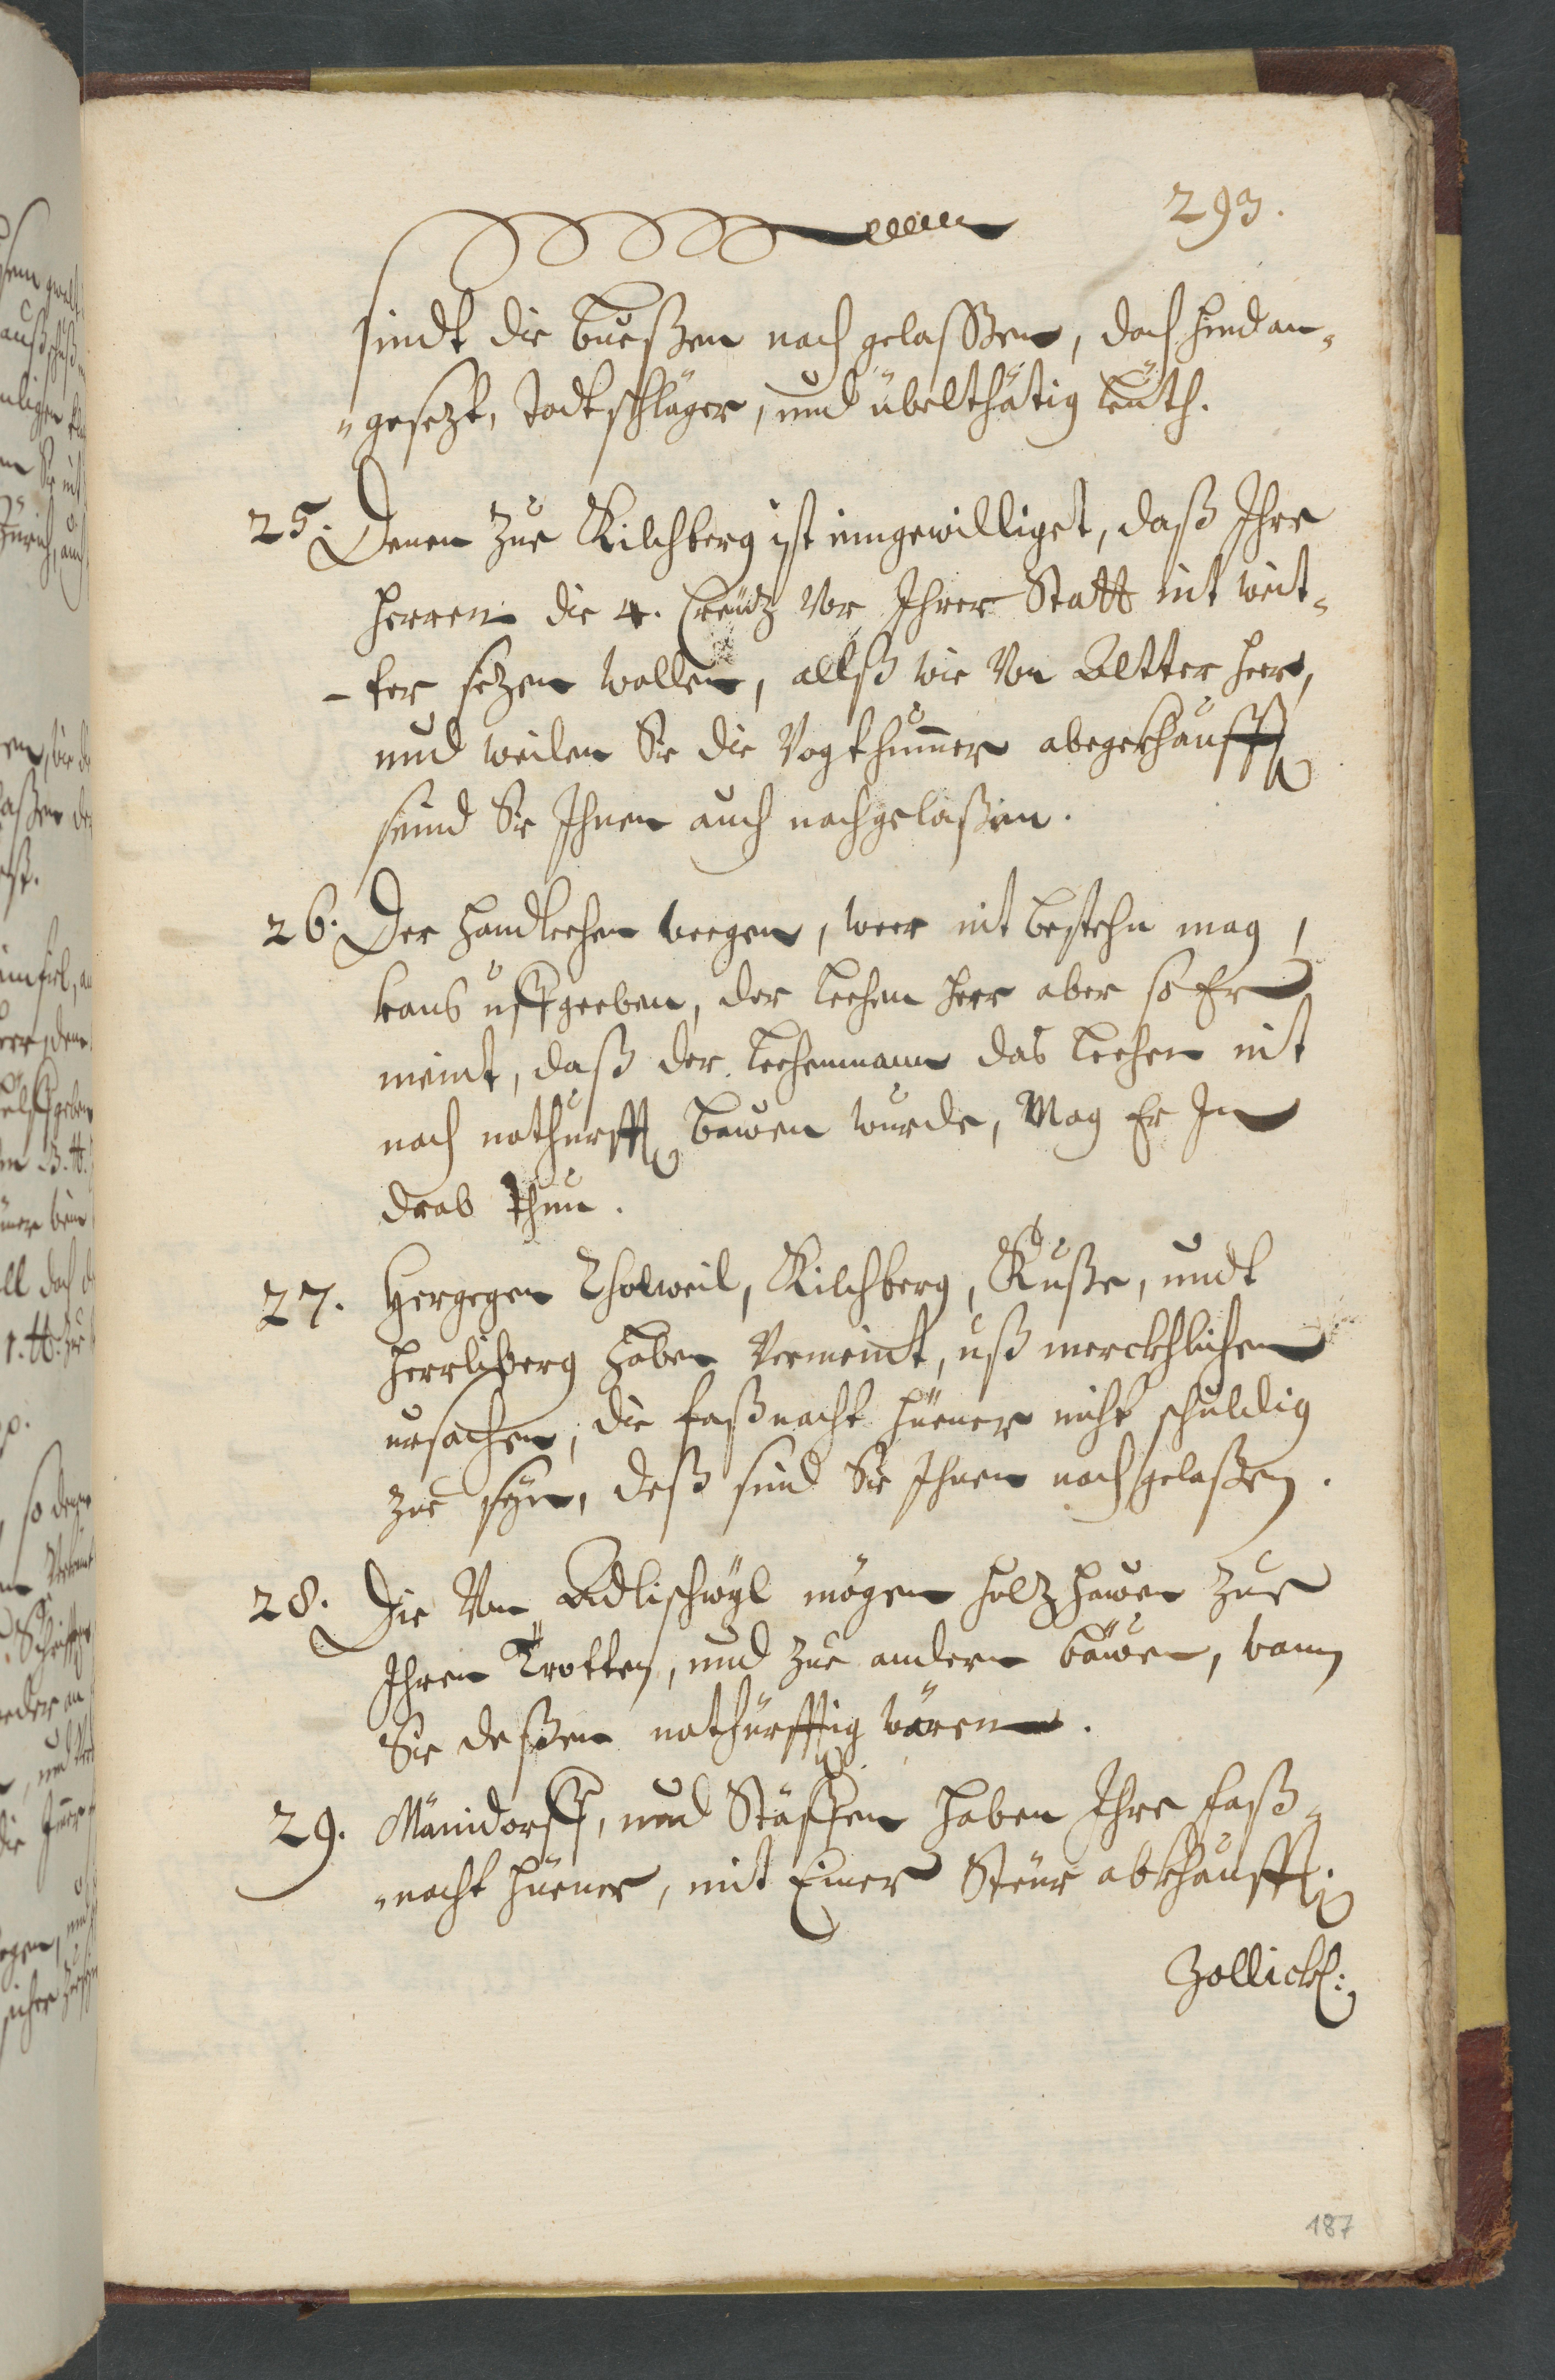 293.
sindt die buoßen nach gelaßßen, doch hindan¬
„gesezt, todtschläger, und übelthätig leüth.
25. Denen zue Kilchberg ist inngewilliget, daß Ihre
Herren die 4. Creütz vor Ihrer Statt nit wit¬
-ter sezen wollen, allß wie von Altter heer,
und weilen Sie die Vogthüner abgekhaufft,
seind Sie Ihnen auch nachgelaßen.
26. Der Handlechen weegen, weer nit bestehn mag,
kans uffgeeben, der Lechen Herr aber so Er
meint, daß der Lechenmann das Lechen nit
nach nothurfft bauwen wurde, Mag Er In
drab thun.
27. Hergegen Tholweil, Kilchberg, Kuße, undt
Herrlißerg haben vermeint, uß merckhlichen
ursachen, die Faßnacht hüener nicht schuldig
zue syn, deß sind Sie Ihnen nachgelaßen.
28. Die Von Adlischwyl mögen holz hawen zue
Ihren Trotten, und zue andern bäwen, wann
Sie deßen nothürfftig wären.
29. Mänidorff, und Stäffen haben Ihre Faß¬
„nacht hüener, mit Einer Steur abkhaufft.
Zollick:
187